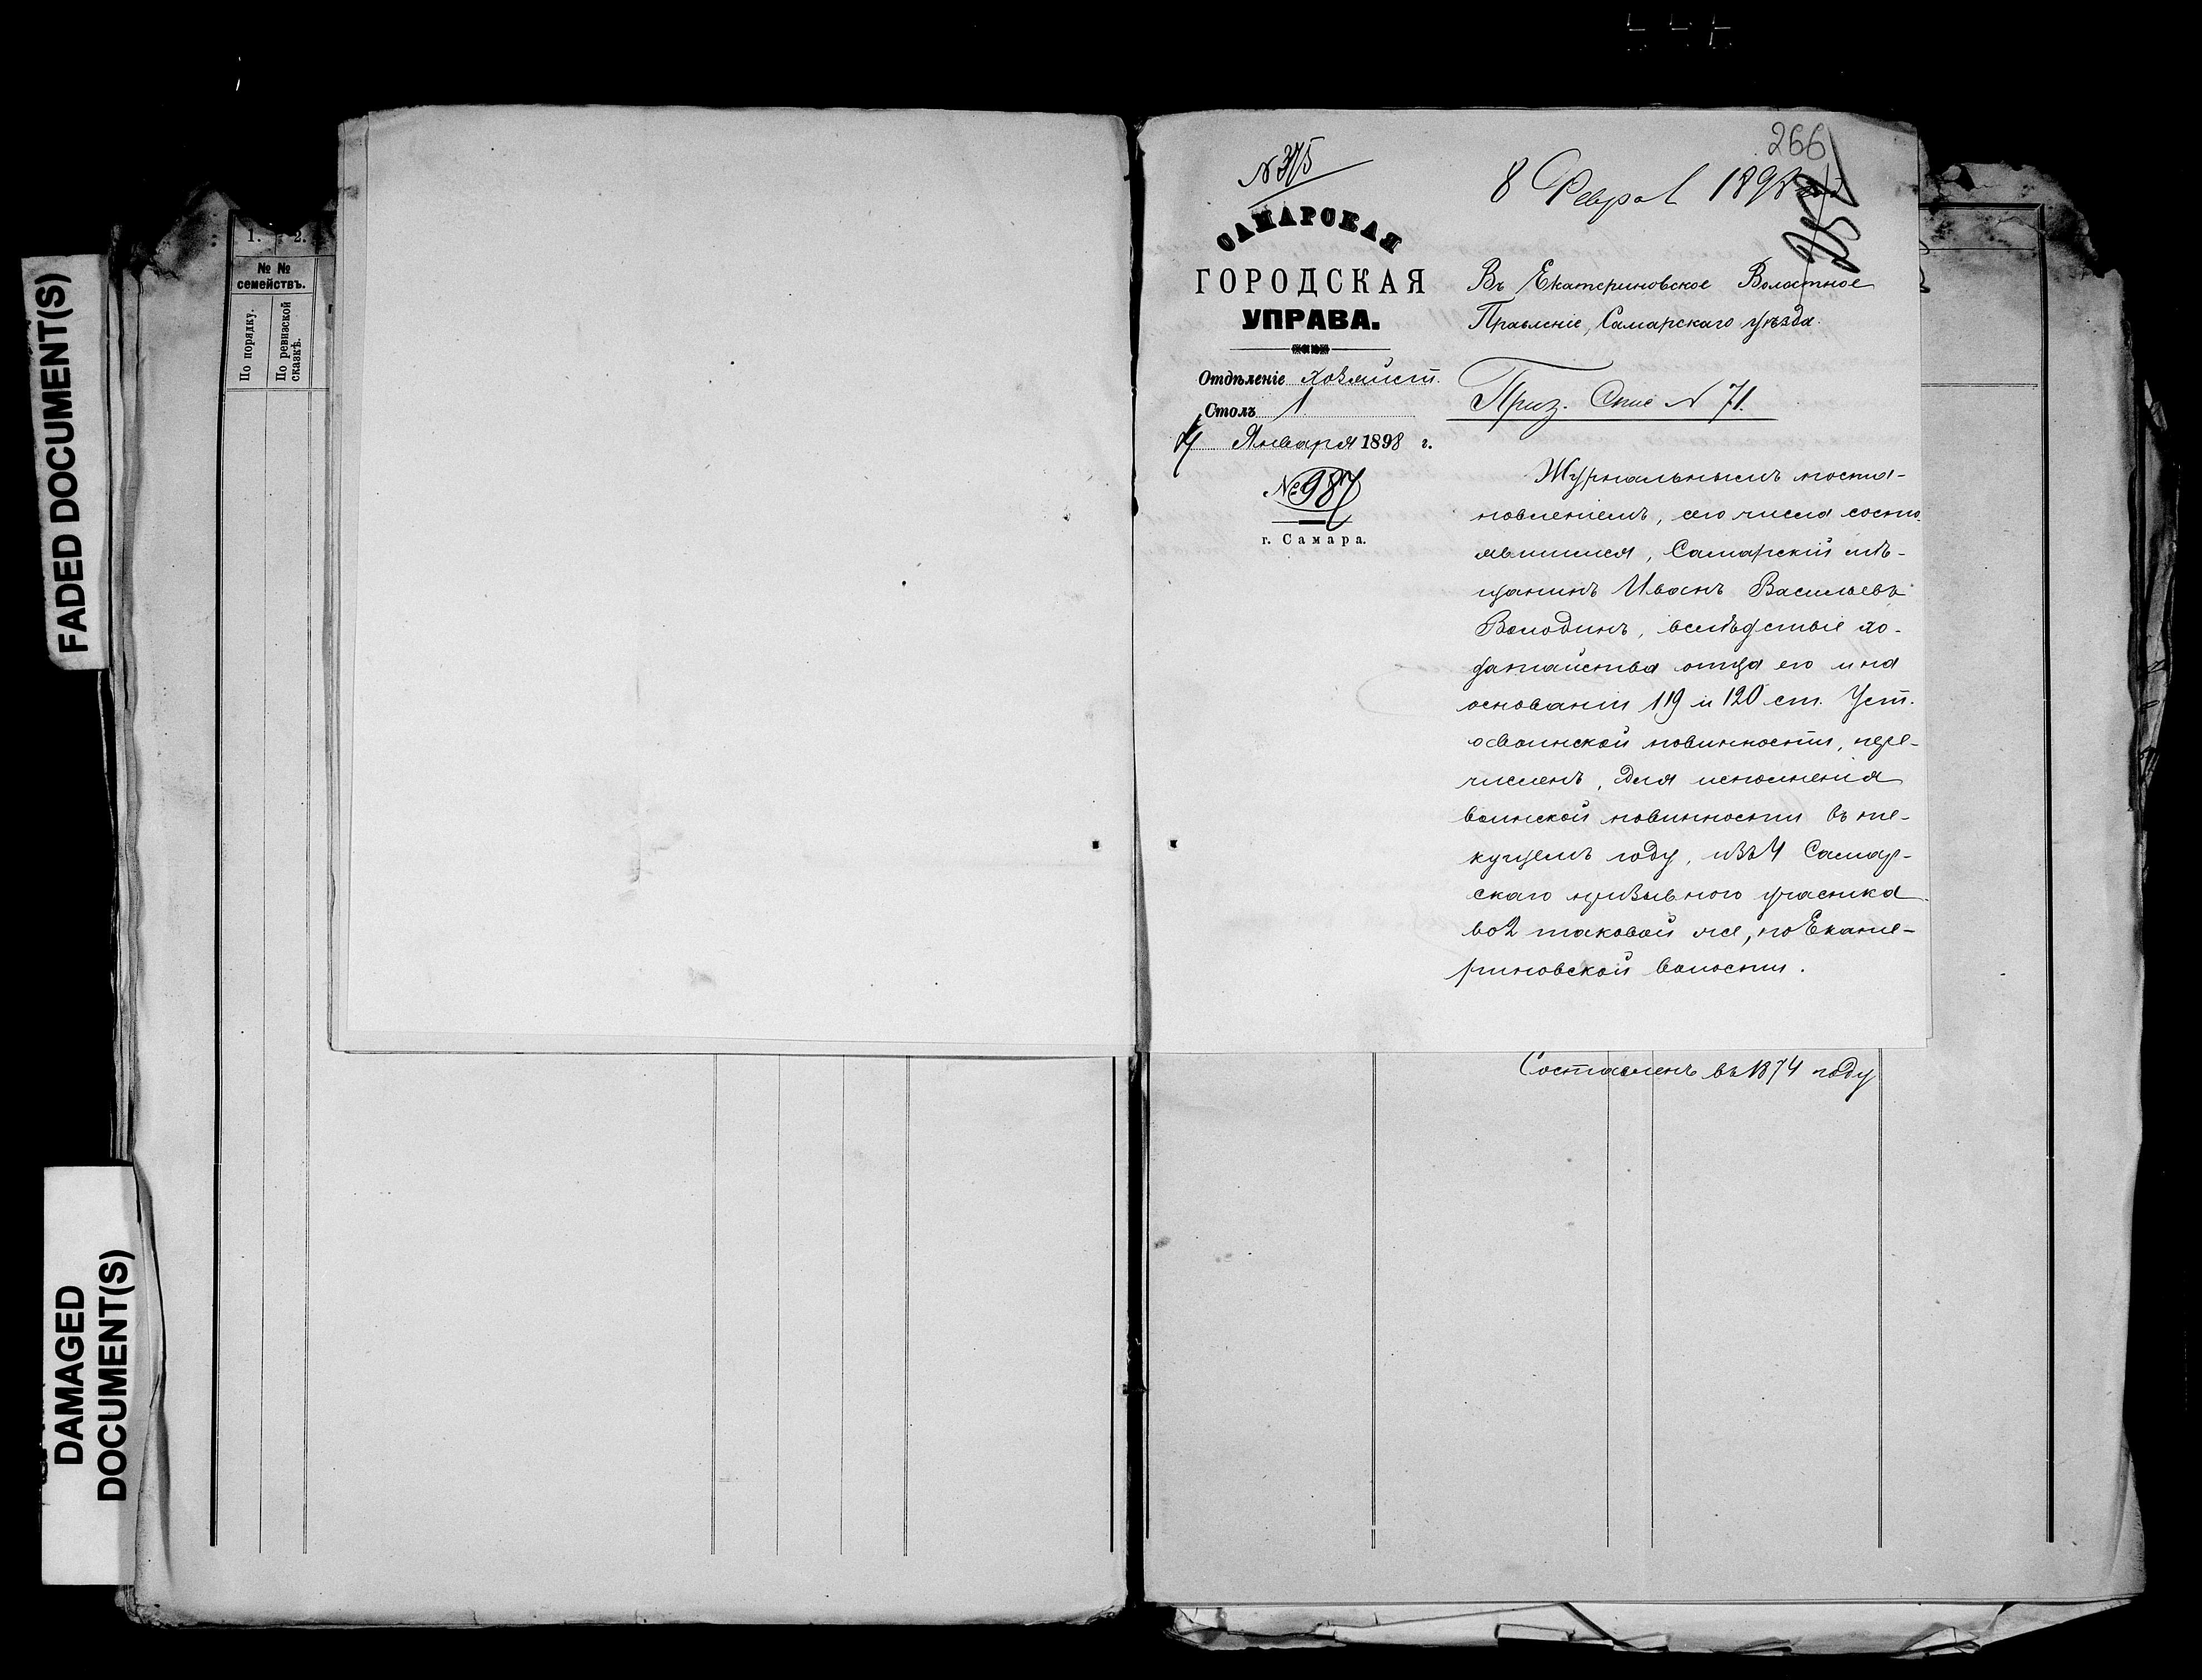 FADED DOCUMENT(S)
DAMAGED
DOCUMENT(S)
1. 2.
№ №
семействъ.
По порядку.
По ревизской
сказкѣ.
266
№ 375
8 Феврал 1898
252
САМАРСКАЯ
ГОРОДСКАЯ
УПРАВА.
Отдѣленіе Хозяйст.
Столъ 1
Января 1898 г.
№ 987
г. Самара.
Въ Екатериновское Волостное
Правленіе, Самарскаго уѣзда.
Приз. Спис № 71.
Журнальнымъ поста-
новленіемъ, сего числа состо
явшимся, Самарскій мѣ-
щанинъ Иванъ Васильевъ
Володинъ, вслѣдствіе хо-
датайства отца его и на
основаніи 119 и 120 ст. Уст.
о воинской повинности, пере-
численъ, для исполненія
воинской повинности въ те-
кущемъ году, изъ 4 Самар-
скаго призывного участка
во 2 таковой же, по Екате-
риновской волости.
Составленъ въ 1874 году